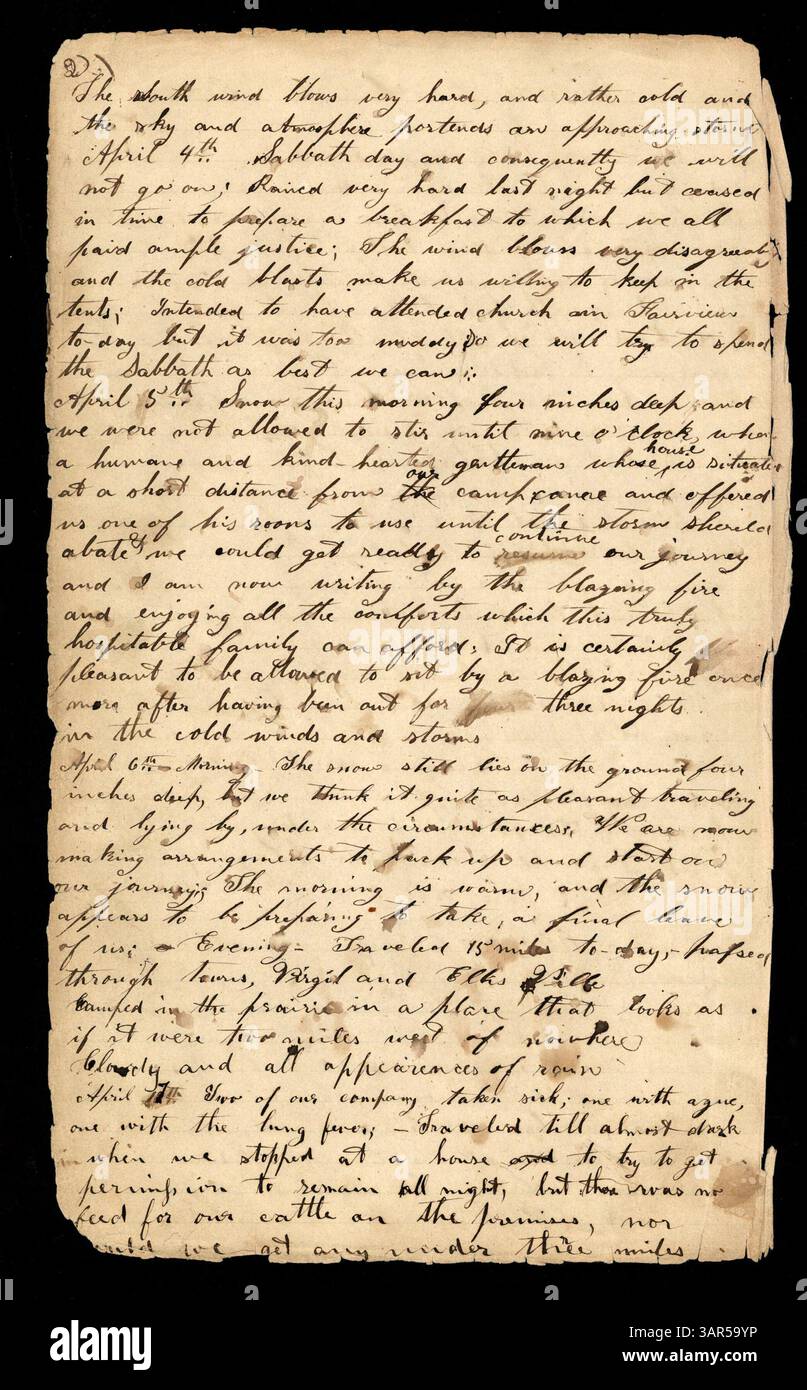 2)
The South wind blows very hard, and rather cold and
the sky and atmosphere portends an approaching storm
April 4th. Sabbath day and consequently we will
not go on; Rained very hard last night but ceased
in time to prepare a breakfast to which we all
paid ample justice; The wind blows very disagreeably
and the cold blasts make us willing to keep in the
tents; Intended to have attended church in Fairview
to-day but it was too muddy; So we will try to spend
the Sabbath as best we can;
April 5th. Snow this morning four inches deep and
we were not allowed to stir until nine o'clock, when
house
a humane and kind-hearted gentleman whose is situated
our
at a short distance from the camp came and offered
us one of his rooms to use until the storm should
continue
abate & we could get ready to resume our journey
and I am now writing by the blazeing fire
and enjoying all the comforts which this truly
hospitable family can afford; It is certainly
pleasant to be allowed to sit by a blazing fire once
more after having been out for three nights
in the cold winds and storms
April 6th - Morning - The snow still lies on the ground four
inches deep, but we think it quite as pleasant traveling
and lying by, under the circumstances, We are now
making arrangements to pack up and start on
our journey; The morning is warm, and the snow
appears to be prepairing to take, a final leave
of us; - Evening - Traveled 15 miles to-day, - passed
through towns, Virgil and Elks
Camped in the prairie in a place that looks as
if it were two miles west of nowhere
Cloudy and all appearences of rain
April 7th Two of our company taken sick; one with ague,
one with the lung fever; - Traveled till almost dark
when we stopped at a house and to try to get
permission to remain all night, but there was no
feed for our cattle on the premises, nor
could we get any under three miles
alamy
Image ID: 3AR59YP
www.alamy.com